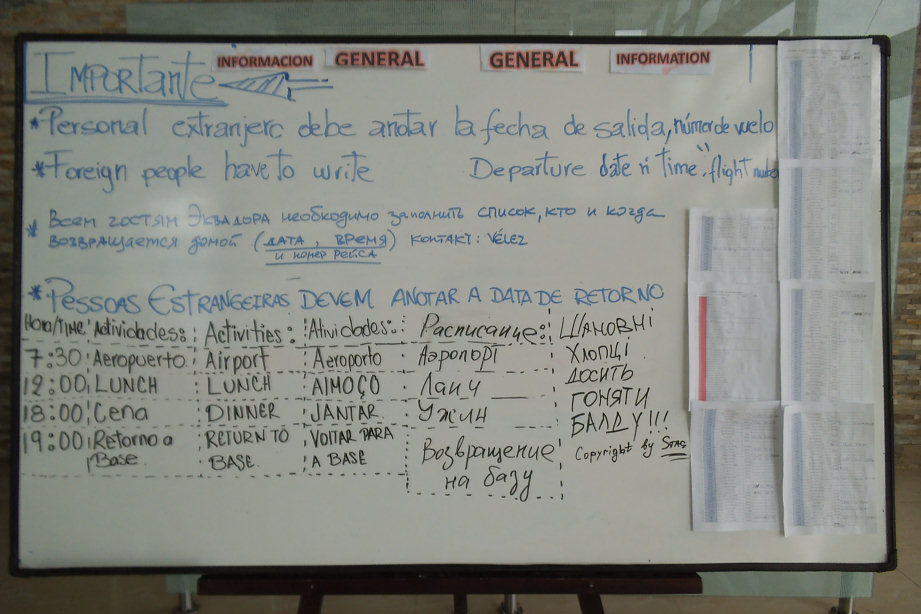 IMPORTANTE INFORMACION GENERAL GENERAL INFORMATION
* Personal extranjero debe anotar la fecha de salida, número de vuelo
* Foreign people have to write Departure date n time, flight number
* Всем гостям Эквадора необходимо заполнить список, кто и когда
возвращается домой (дата, время) контакт: Vélez
и номер рейса
* PESSOAS ESTRANGEIRAS DEVEM ANOTAR A DATA DE RETORNO
Hora/TIME Actividades: Activities: Atividades: Расписание:
7:30 Aeropuerto Airport Aeroporto Аэропорт
12:00 LUNCH LUNCH AlMOÇO Ланч
18:00 Cena DINNER JANTAR Ужин
19:00 Retorno a Base RETURN TO BASE. VOLTAR PARA A BASE Возвращение на базу
ШАНОВНІ
ХЛОПЦІ
ДОСИТЬ
ГОНЯТИ
БАЛДУ!!!
Copyright by Stas